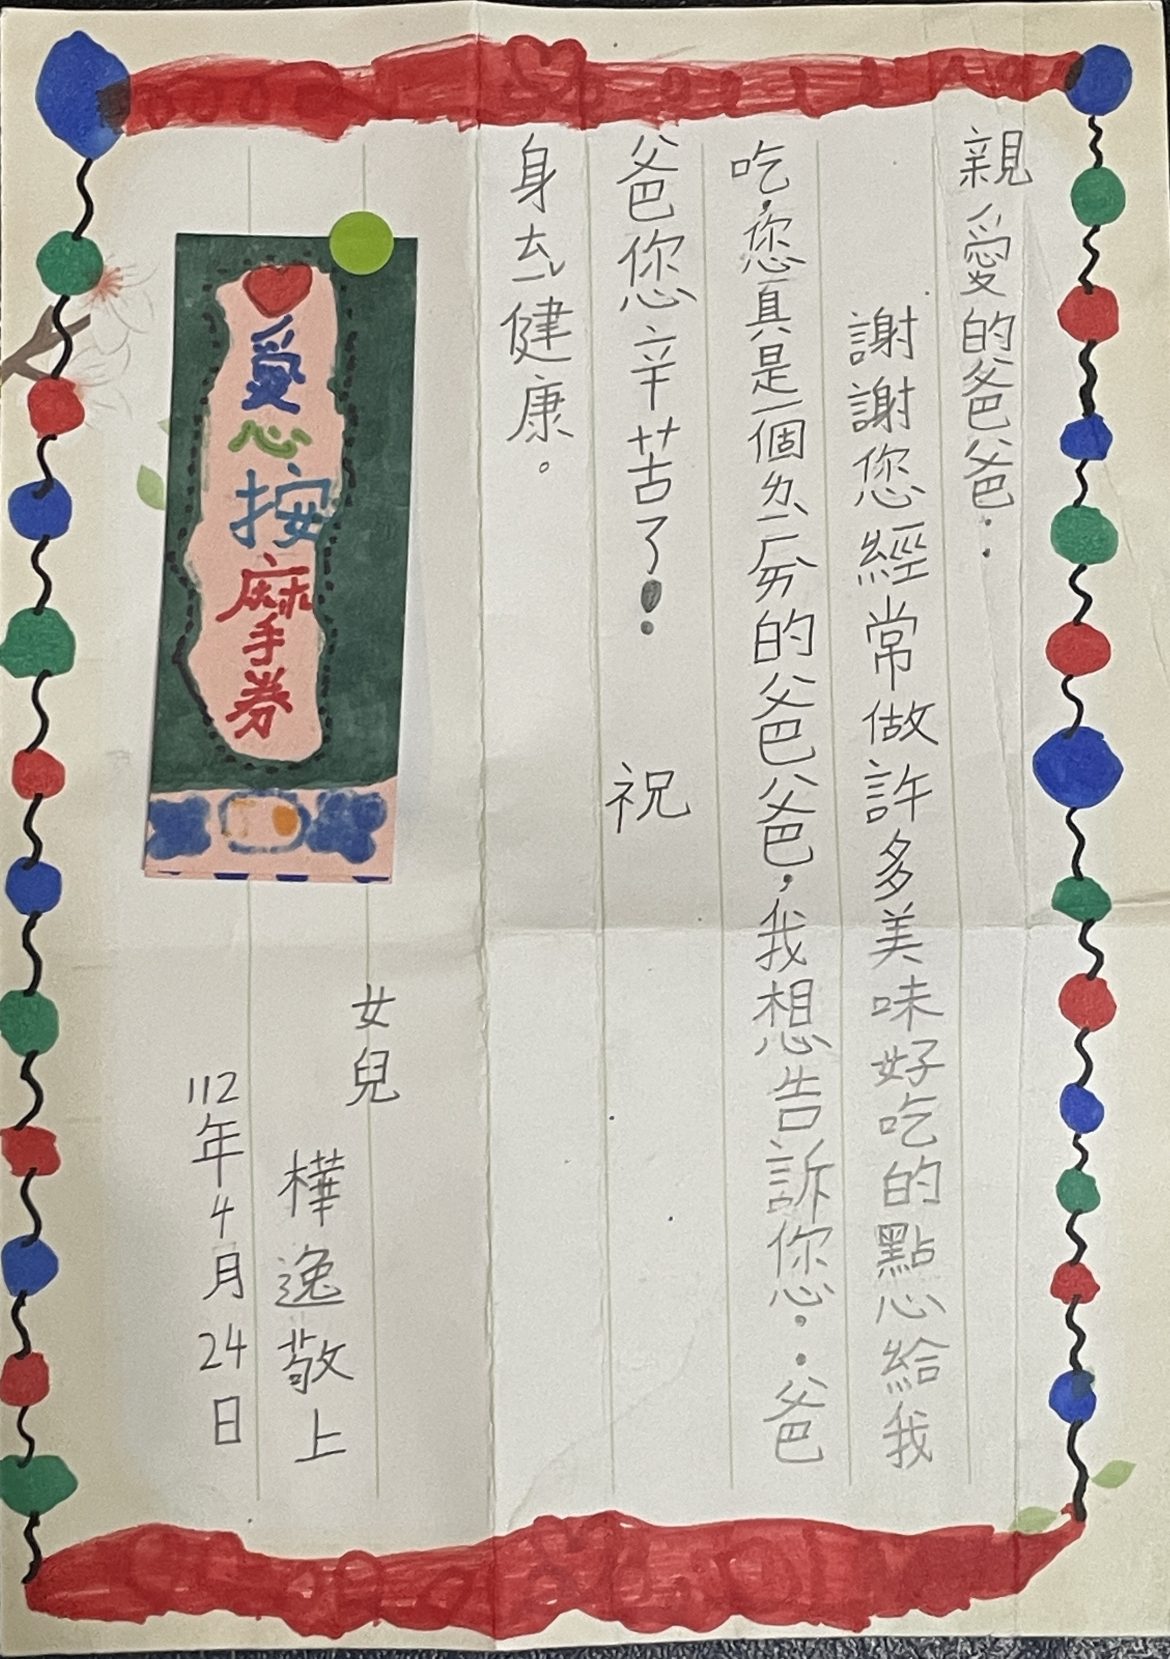 親愛的爸爸：
謝謝您經常做許多美味好吃的點心給我
吃，您真是一個ㄌㄧˋㄏㄞˋ的爸爸，我想告訴您：爸
爸您辛苦了！ 祝
身ㄊㄧˇ健康。
愛心按摩券
女兒
樺逸敬上
112年4月24日